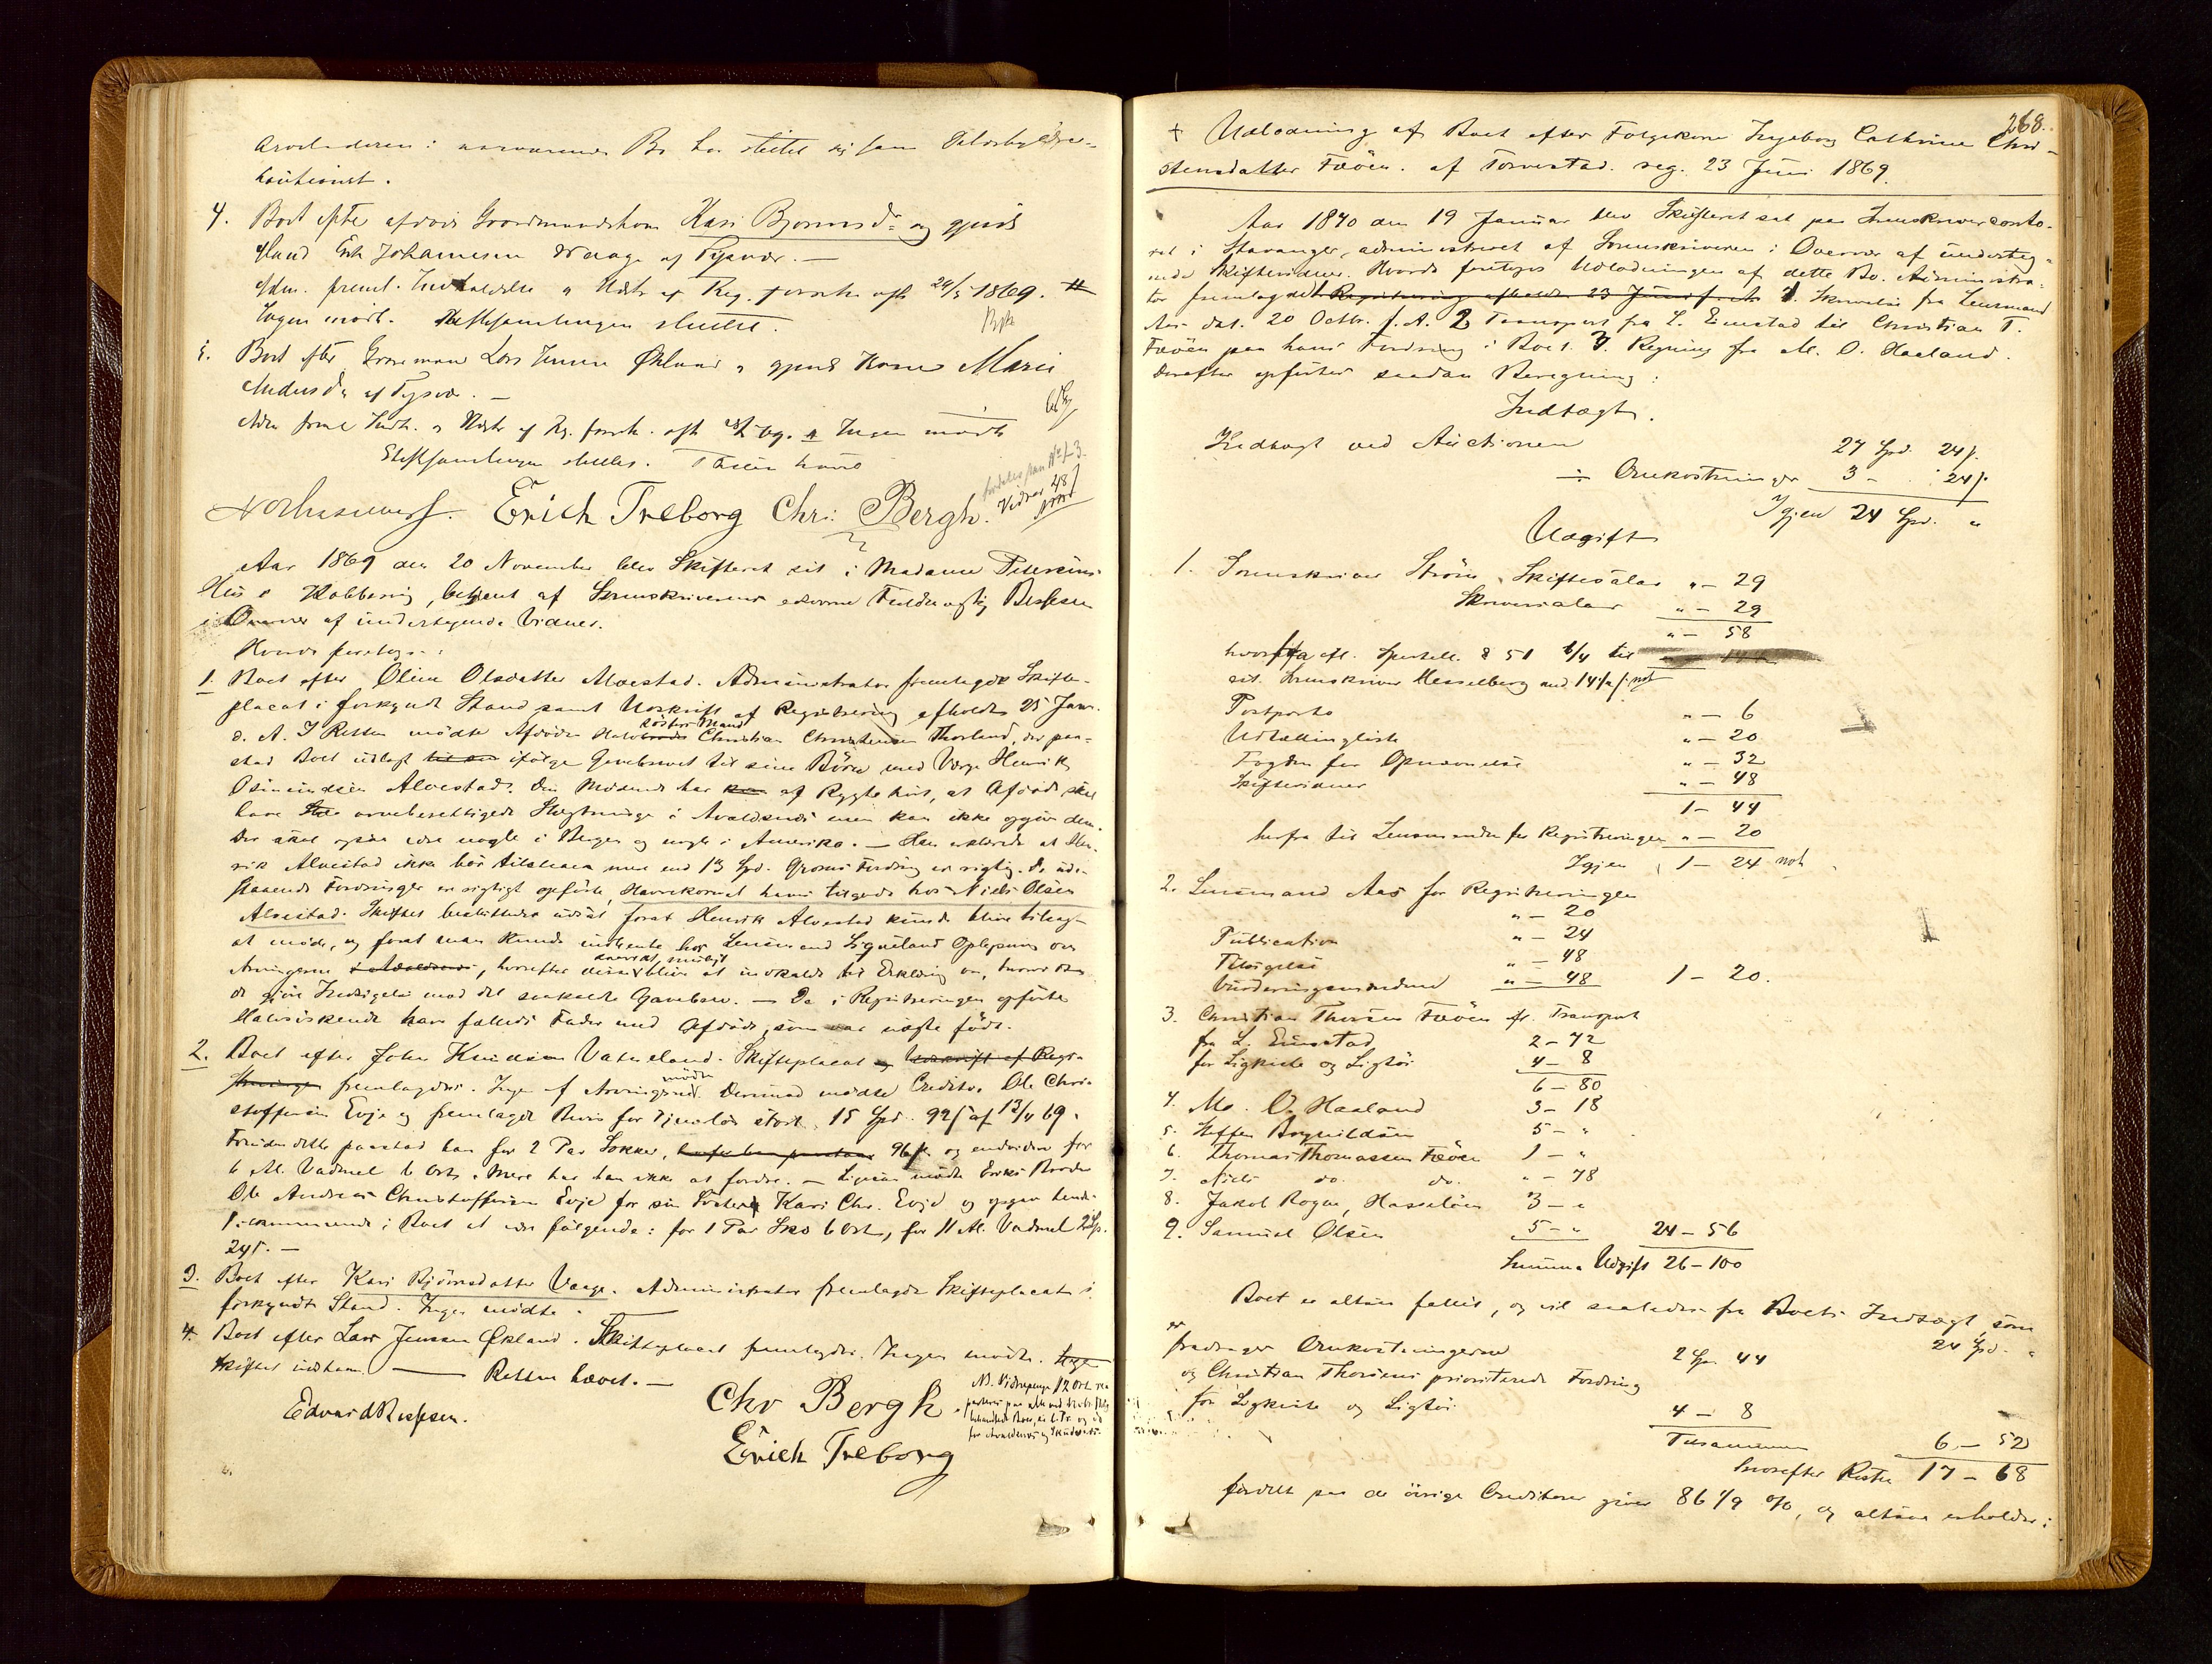 hautionist.
4. Boet efter afdøde Gaardmandskone Kari Bjørnsdr og gjenl.
Mand Erik Johannesen Waage af Tysvær. —
Adm. freml. Indkaldelse og Udskr af Reg. forretn afh 24/5 1869. #
Ingen mødt. Skiftesamlingen sluttet.
5. Boet efter Gaardmand Lars Jensen Økland og gjenl. Kone Marie
Andersdr af Tysvær. —
Ingen mødte
Skiftesamlingen sluttes.
Erich Treborg Chr: Bergh.
Aar 1869 den 20 November blev Skifteret sat i Madame Petersens
Hus i Kobbervig, betjent af Sorenskriverens edsvorne Fuldmægtig Bessesen
i Overvær af undertegnede Vidner.
Hvorda foretoges:
1. Boet efter Oline Olsdatter Alvestad. Administrator fremlagde Skifte-
placat i forkyndt Stand samt Udskrift af Registrering afholdt 25 Janr.
d. A. I Retten mødte Afdødes Halvbroder søsters Mand Christian Christensen Thorland, der paa-
stod Boet udlagt til sin ifølge Gavebrevet til sine Børn med Værge Henrik
Osmundsen Alvestad. Den Mødende har af Rygte hørt, at Afdøde skal
have arveberettigede Slægtninge i Avaldsnæs men kan ikke opgive dem.
Der skal ogsaa være nogle i Bergen og nogle i Amerika. — Han erklærede at Hen-
rik Alvestad ikke bør tilstaaes mere end 13 Spd. Gröns Fordring er rigtig. De ude-
staaende Fordringer er rigtigt opførte, Havrekornet hører tilgode hos Niels Olsen
Alvestad. Skiftet besluttedes udsat forat Henrik Alvestad kunde blive tilsagt
at møde, og forat man kunde indhente hos Lensmand Ligueland Oplysning om
Arvingerne i Avaldsnæs, hvorefter disse saavidt muligt blive at indkalde til Erklæring om, hvorvidt
de gjøre Indsigelse mod det saakaldte Gavebrev. — De i Registreringen opførte
Halvsiskende have fælleds Fader med Afdøde, som var uægte født.
2. Boet efter John Knudsen Vatneland. Skifteplacat og Udskrift af Regi-
streringen fremlagdes. Ingen af Arvingerne mødte. Derimod mødte Creditor Ole Chri-
stoffersen Evje og fremlagde Bevis for Tjenesteløn stort 15 Spd. 92 ß af 13/4 69.
Foruden dette paastod han for 2 Par Sokker, 96 ß og endvidere for
6 Al. Vadmel 6 Ort. Mere har han ikke at fordre. — Ligesaa mødte Eriks Broder
Ole Andreas Christoffersen Evje for sin Søster Kari Chr. Evje og opgav hendes
Tilkommende i Boet at være følgende: for 1 Par Sko 6 Ort, for 11 Al. Vadmel 2 Sp.
24 ß. —
3. Boet efter Kari Bjørnsdatter Vaage. Administrator fremlagde Skifteplacat i
forkyndt Stand. Ingen mødte.
4. Boet efter Lars Jensen Økland. Skifteplacat fremlagdes. Ingen mødte. Ingen
Skiftet udsat. — Retten hævet. —
Edvard Bessesen. Chr Bergh.
Erich Treborg
268.
+ Udlodning af Boet efter Føderkone Ingeborg Cathrine Chri-
stensdatter Fæøen. af Torvestad. reg. 23 Juni 1869.
Aar 1870 den 19 Januar blev Skifteret sat paa Sorenskriverconto-
ret i Stavanger, administreret af Sorenskriveren i Overvær af underteg-
nede Skiftevidner. Hvorda foretoges Udlodningen af dette Bo. Administra-
tor fremlagde Registrering afholdt 23 Juni f. A. 1. Skrivelse fra Lensmand
Aas dat. 20 Octbr. f. A. 2 Transport fra L. Eunstad til Christian T.
Fæøen paa hans Fordring i Boet. 3. Regning fra M. O. Haaland.
Derefter opførtes saadan Beregning:
Indtægt.
Indtægt ved Auctionen 27 Spd. 24 ß.
÷ Omkostninger 3 - 24 ß.
Igjen 24 Spd. "
Udgift
1. Sorenskriver Strøm, Skiftesalær " - 29
Skriversalær " - 29
" - 58
hvorfra efl. Sportell. § 51 1/4 til
est. Sorenskriver Hesselberg med 14 1/2 ß. not
Postporto " - 6
Udtællingliste " - 20
Fogden for Opnævnelse " - 32
Skiftevidner " - 48
1 - 44
herfra til Lensmanden for Registreringen " - 20
Igjen 1 - 24 not.
2. Lensmand Aas for Registreringen
" - 20
Publication " - 24
Tilsigelse " - 48
Vurderingsmændene " - 48 1 - 20.
3. Christian Thorsen Fæøen efl. Transport
fra L. Eunstad 2 - 72
for Ligkiste og Ligtøi 4 - 8
6 - 80
4. M. O. Haaland 3 - 18
5. Steffen Bognildsen 5 - "
6. Thomas Thomassen Fæøen 1 - "
7. Niels do. do. " - 78
8. Jakob Rogne, Hasseløen 3 - "
9. Samuel Olsen 5 - " 24 - 56
Summa Udgift 26 - 100
Boet er altsaa fallit, og vil saaledes fra Boets Indtægt, som
er 24 Spd. "
fradrages Omkostningerne 2 Spd. 44
og Christian Thorsens prioriterede Fordring
for Ligkiste og Ligtøi 4 - 8
Tilsammen 6 - 52
hvorefter Rester 17 - 68
fordelt paa de øvrige Creditorer giver 86 1/9 %, og altsaa erholder: